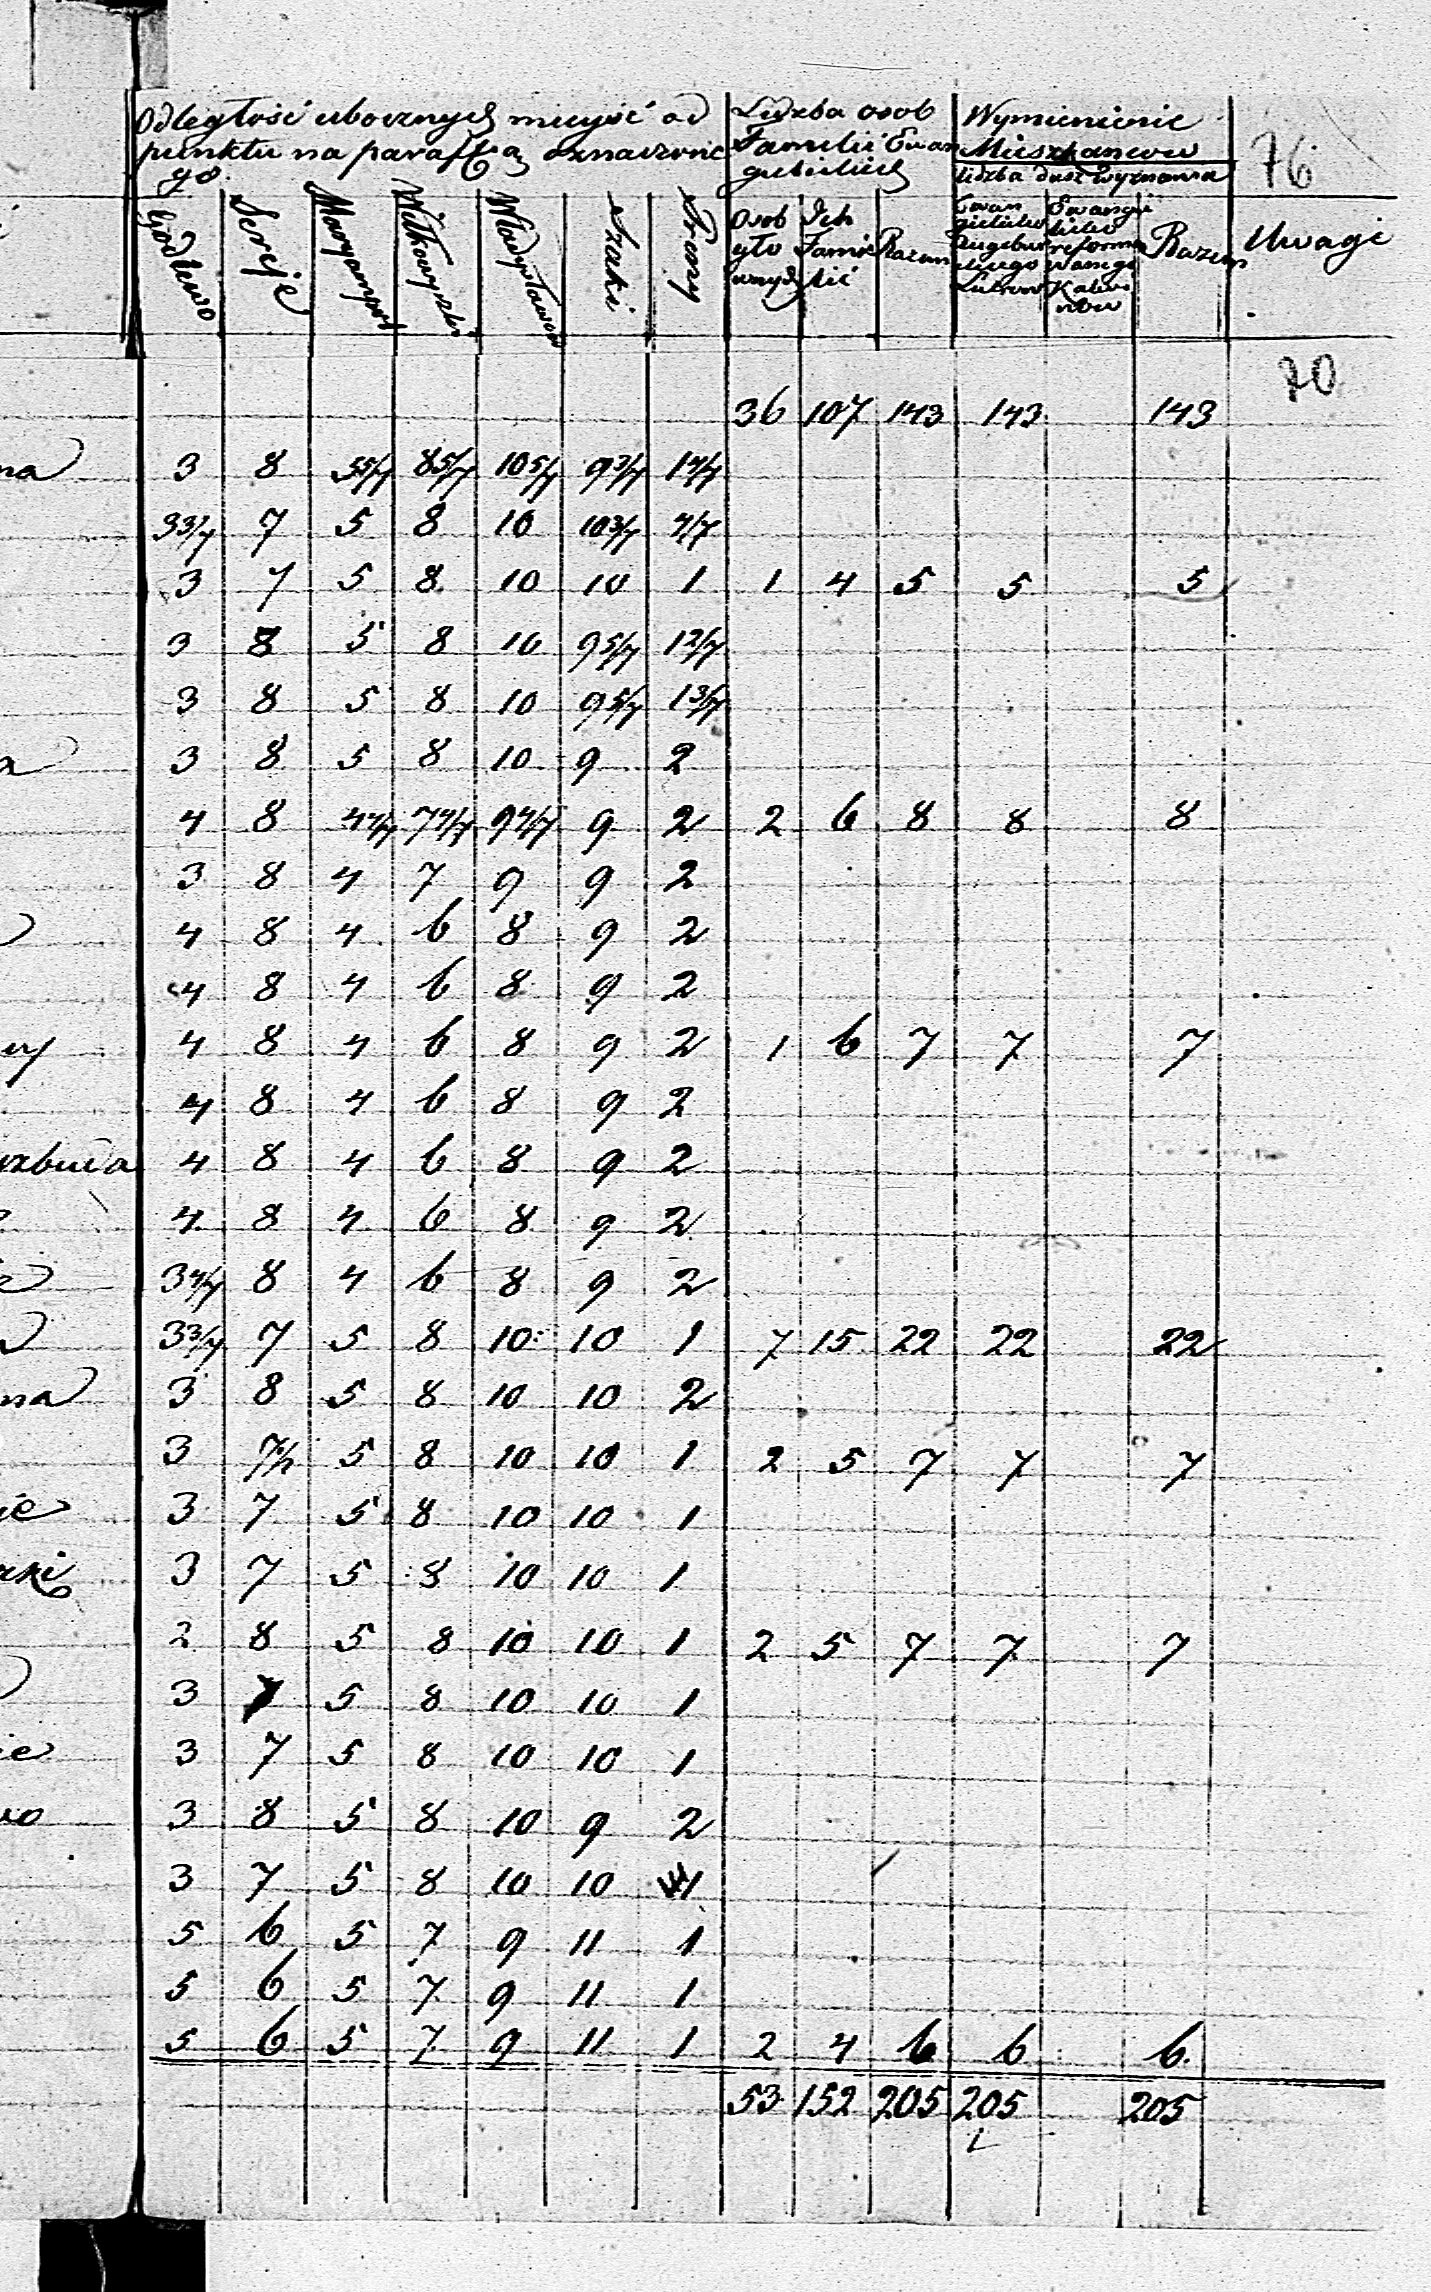 Odległość ubocznych mieysc od
punktu na parafią oznaczone
go.
Liczba osob
Familii Ewan
gielickich
Wymienienie
Mieszkancow
liczba dusz wyznania
76
Godlewo Sereje Maryampol Wiłkowyszki Władysławow Szaki Preny
Osob
Ich
Familii
Razem
Ewan
gielicko
Augsbur
skiego
Lutrow
Ewangie
licko
reformo
wanego
Kalwi
now
Razem
Uwagi
70
36 107 143 143 143
na 3 8 5 5/7 8 5/7 10 5/7 9 3/7 1 4/7
3 3/7 7 5 8 10 10 3/7 4/7
3 7 5 8 10 10 1 1 4 5 5 5
3 8 5 8 10 9 5/7 1 2/7
3 8 5 8 10 9 5/7 1 3/7
a 3 8 5 8 10 9 2
4 8 4 4/7 7 4/7 9 4/7 9 2 2 6 8 8 8
3 8 4 7 9 9 2
4 8 4 6 8 9 2
4 8 4 6 8 9 2
wy 4 8 4 6 8 9 2 1 6 7 7 7
4 8 4 6 8 9 2
rzbuda 4 8 4 6 8 9 2
4 8 4 6 8 9 2
e 3 4/7 8 4 6 8 9 2
3 3/7 7 5 8 10 10 1 7 15 22 22 22
na 3 8 5 8 10 10 2
3 7 1/2 5 8 10 10 1 2 5 7 7 7
ie 3 7 5 8 10 10 1
rki 3 7 5 8 10 10 1
2 8 5 8 10 10 1 2 5 7 7 7
3 7 5 8 10 10 1
ie 3 7 5 8 10 10 1
wo 3 8 5 8 10 9 2
3 7 5 8 10 10 1
5 6 5 7 9 11 1
5 6 5 7 9 11 1
5 6 5 7 9 11 1 2 4 6 6 6
53 152 205 205 205